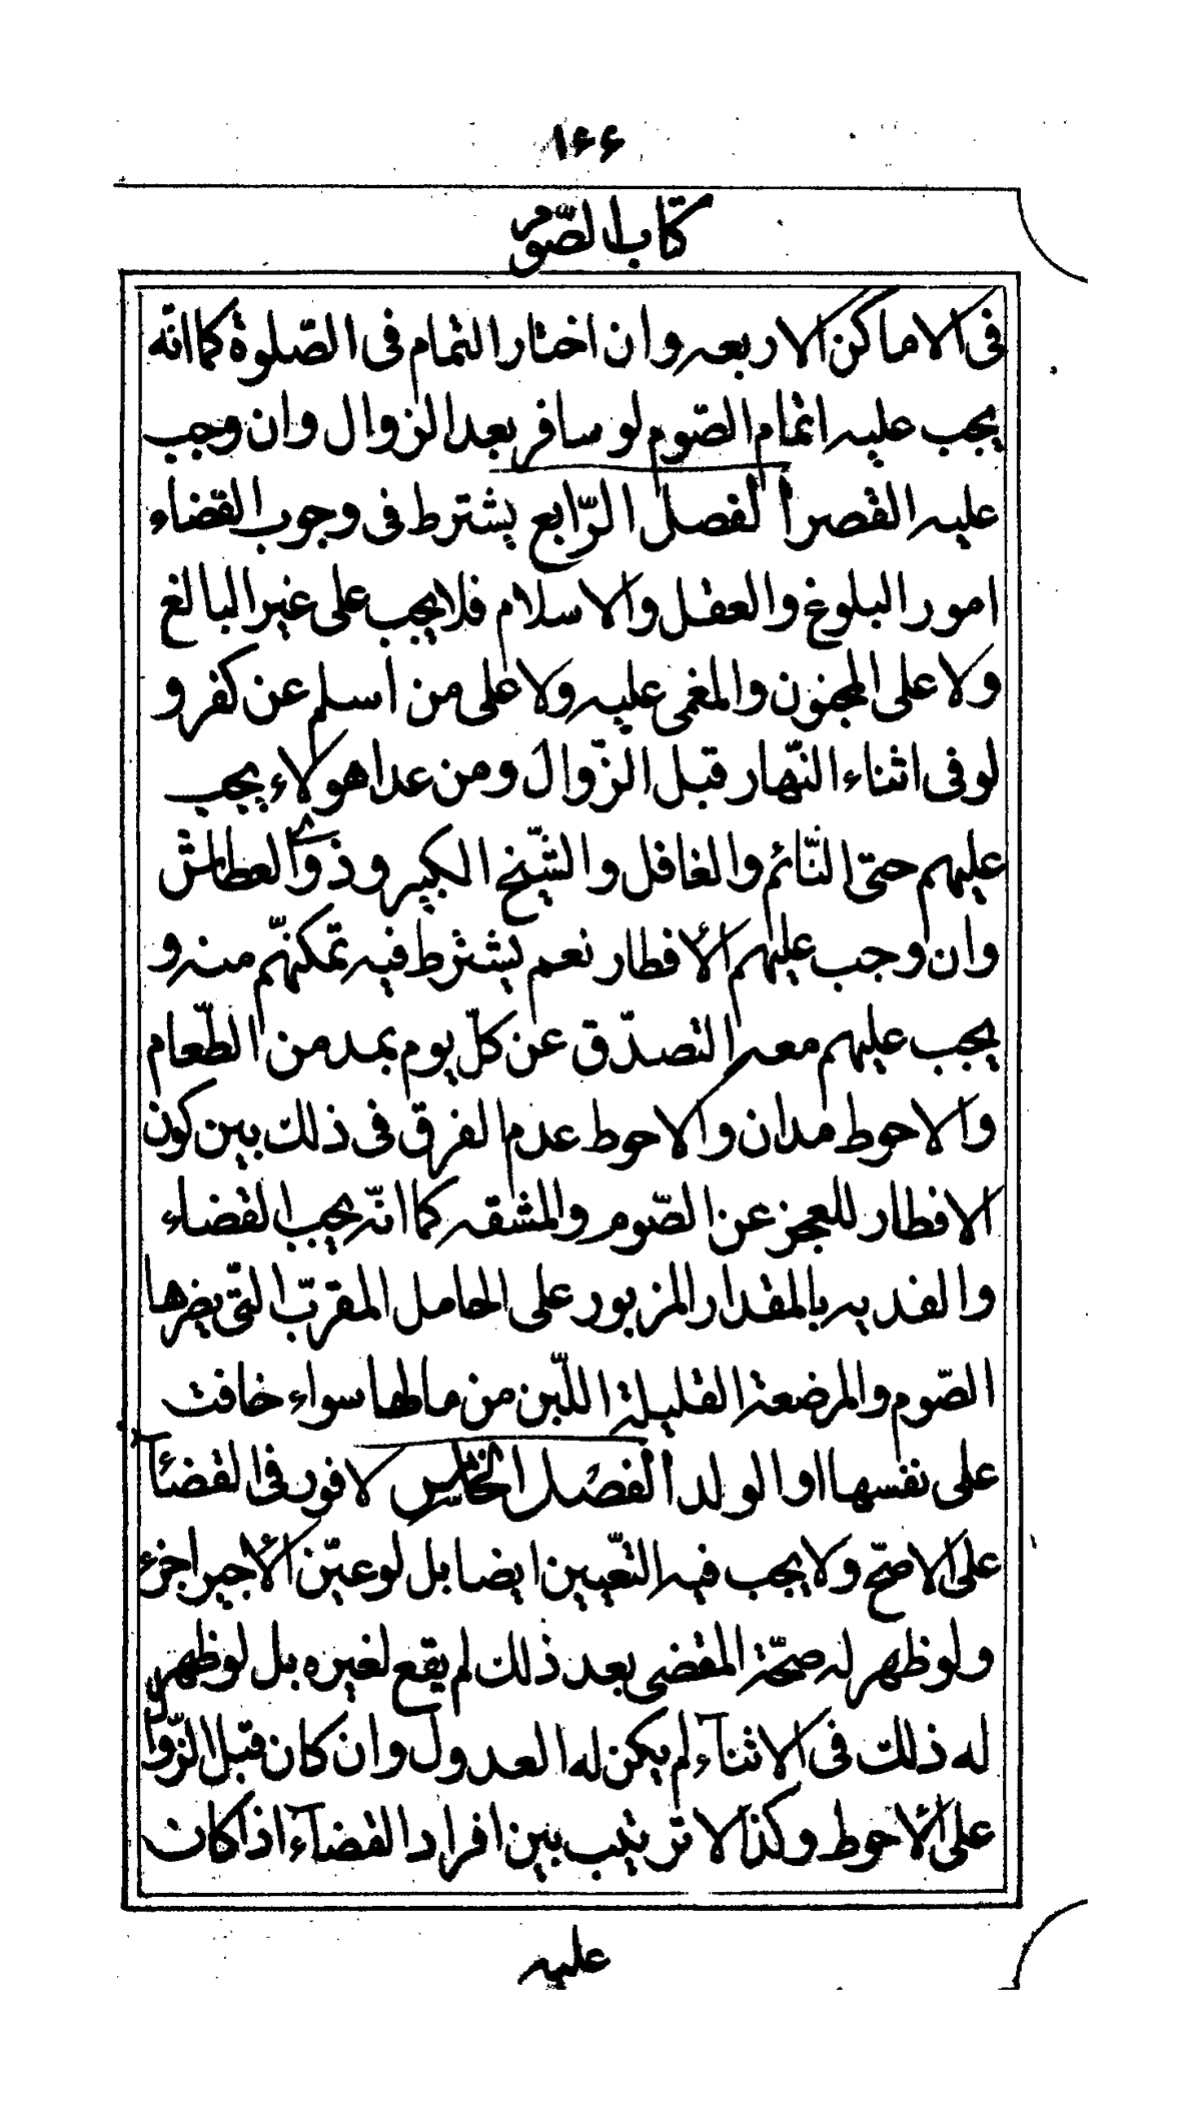 ۱۶۶
كتاب الصّوم
فى الاماكن الاربعه وان اختار التمام فى الصّلوة كما انّه
يجب عليه اتمام الصّوم لو سافر بعد الزوال وان وجب
عليه القصر الفصل الرّابع يشترط فى وجوب القضاء
امور البلوغ والعقل والاسلام فلا يجب على غير البالغ
ولا على المجنون والمغمى عليه ولا على من اسلم عن كفر و
لو فى اثناء النّهار قبل الزّوال ومن عدا هولاء يجب
عليهم حتى النّائم والغافل والشّيخ الكبير وذوى العطاش
وان وجب عليهم الأفطار نعم يشترط فيه تمكنّهم منه و
يجب عليهم معه التصدّق عن كلّ يوم بمد من الطّعام
والاحوط مدان والاحوط عدم الفرق فى ذلك بين كون
الافطار للعجز عن الصّوم والمشقه كما انّه يجب القضاء
والفديه بالمقدار المزبور على الحامل المقربّ التّى يضرها
الصّوم والمرضعة القليلة اللّبن من مالها سواء خافت
على نفسها او الولد الفصل الخامس لا فور فى القضآء
على الاصحّ ولا يجب فيه التعّيين ايضا بل لو عيّن الأخير اجزء
ولو ظهر له صحّة المقضى بعد ذلك لم يقع لغيره بل لو ظهر
له ذلك فى الاثنآء لم يكن له العدول وان كان قبل الزّوال
على الأحوط وكذا لا ترتيب بين افراد القضآء اذا كان
عليه